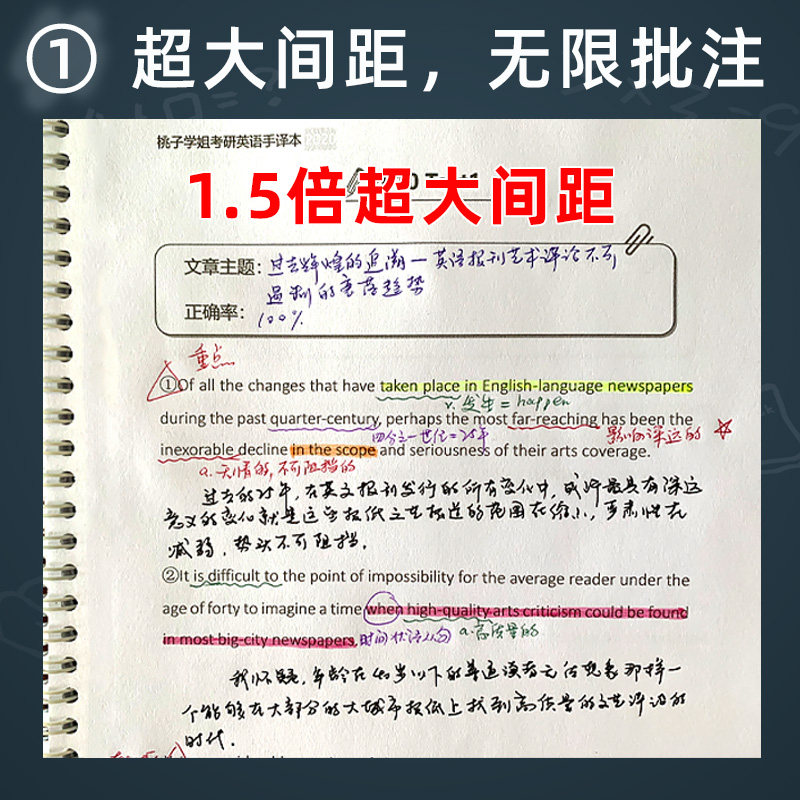 ① 超大间距，无限批注
桃子学姐考研英语手译本
1.5倍超大间距
文章主题：过去辉煌的追溯一英语报刊艺术评论不可
遏制的衰落趋势
正确率：100%
重点
①Of all the changes that have taken place in English-language newspapers
v.发生=happen
during the past quarter-century, perhaps the most far-reaching has been the
四分之一世纪=25年 影响深远的
inexorable decline in the scope and seriousness of their arts coverage.
a.无情的,不可阻挡的
过去的25年,在英文报刊发行的所有变化中,或许最具有深远
意义的变化就是这些报纸文艺报道的范围在缩小,严肃性在
减弱,势头不可阻挡.
②It is difficult to the point of impossibility for the average reader under the
age of forty to imagine a time when high-quality arts criticism could be found
in most big-city newspapers. 时间状语从句 a.高质量的
我怀疑,年龄在40岁以下的普通读者无法想象那样一
个能够在大部分的大城市报纸上找到高质量的文艺评论的
时代.